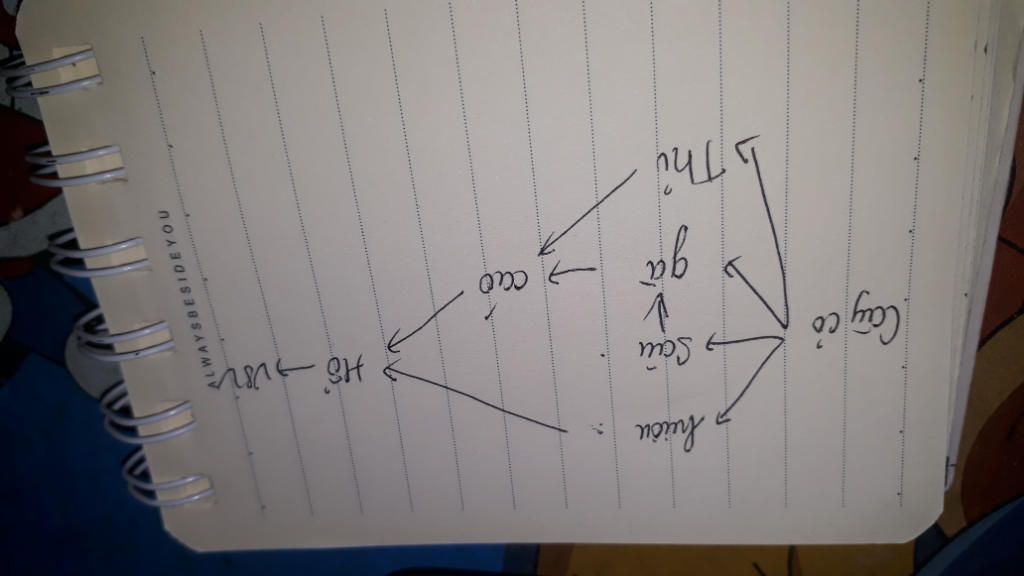 hươu
Sâu
Cây cỏ
Hổ → VSV
gà
cáo
Thỏ
ALWAYSBESIDEYOU